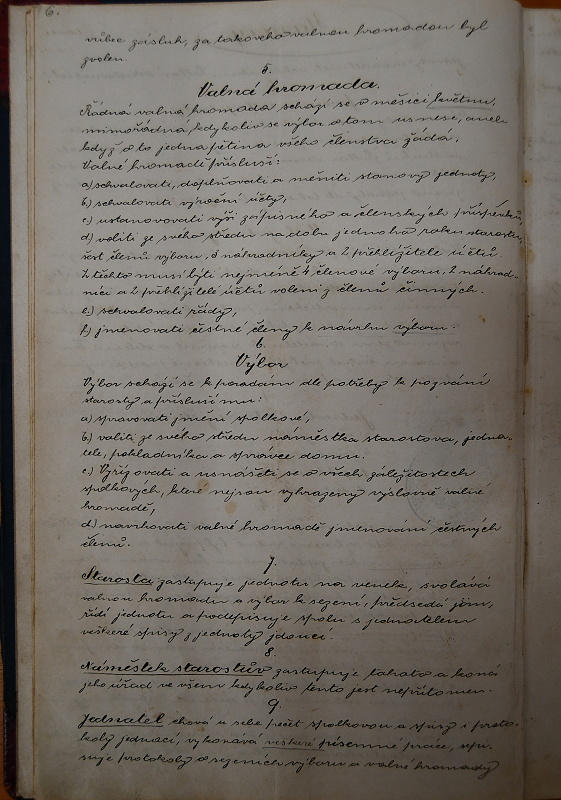 6.
vůbec zásluh, za takového valnou hromadou byl
zvolen.
5.
Valná hromada.
Řádná valná hromada schází se v měsíci květnu,
mimořádná, kdykoliv se výbor o tom usnese, aneb
když o to jedna pětina všeho členstva žádá.
Valné hromadě přísluší:
a) schvalovati, doplňovati a měniti stanovy jednoty,
b) schvalovati výroční účty,
c.) ustanovovati výši zápisného a členských příspěvků,
d) voliti ze svého středu na dobu jednoho roku starostu,
šest členů výboru, 3 náhradníky a 2 přehlížitele účtů.
Z těchto musí býti nejméně 4 členové výboru, 2 náhrad-
níci a 2 přehlížitelé účtů voleni z členů činných.
e.) schvalovati řády,
f.) jmenovati čestné členy k návrhu výboru.
6.
Výbor
Výbor schází se k poradám dle potřeby k pozvání
starosty a přísluší mu:
a) spravovati jmění spolkové,
b) voliti ze svého středu náměstka starostova, jedna-
tele, pokladníka a správce domu.
c.) Vyřizovati a usnášeti se o všech záležitostech
spolkových, které nejsou vyhrazeny výslovně valné
hromadě,
d) navrhovati valné hromadě jmenování čestných
členů.
7.
Starosta zastupuje jednotu na venek, svolává
valnou hromadu a výbor k sezení, předsedá jim,
řídí jednotu a podepisuje spolu s jednatelem
veškeré spisy z jednoty jdoucí.
8.
Náměstek starostův zastupuje tohoto a koná
jeho úřad ve všem kdykoliv tento jest nepřítomen.
9.
Jednatel chová u sebe pečeť spolkovou a spisy i proto-
koly jednací, vykonává veškeré písemné práce, sepi-
suje protokoly o sezeních výboru a valné hromady